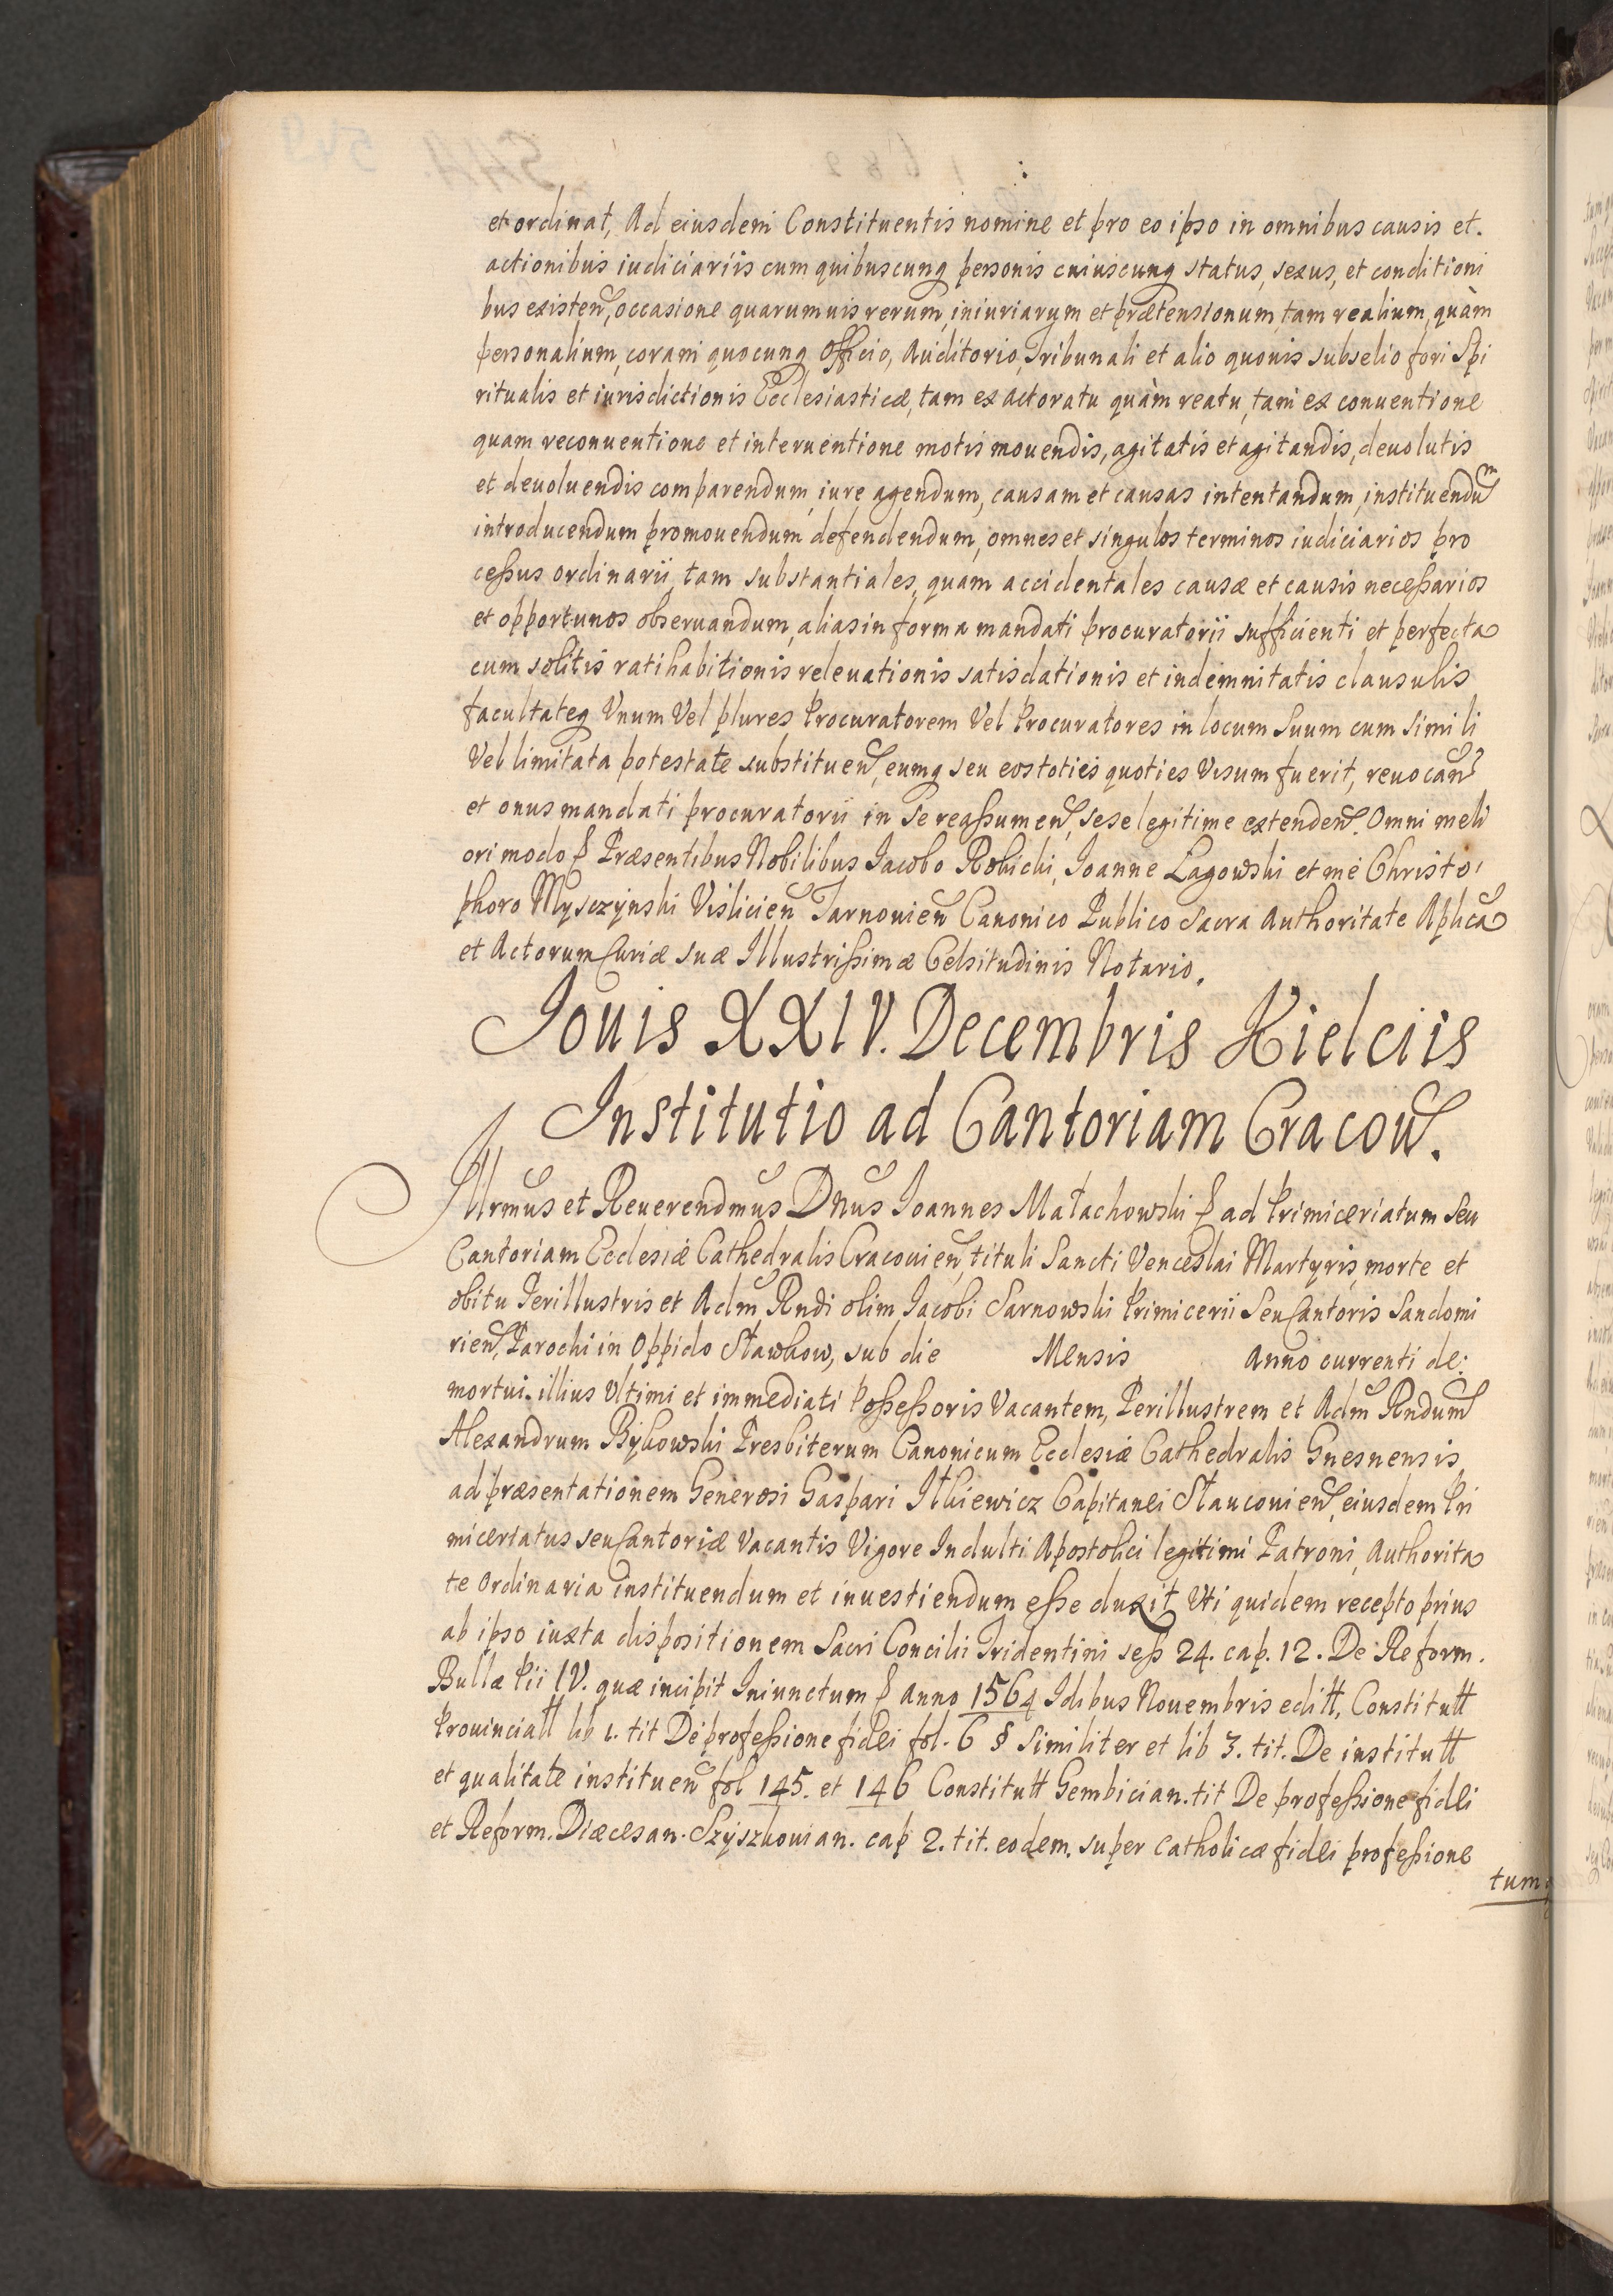 et ordinat, Ad eiusdem Constituentis nomine et pro eo ipso in omnibus causis et.
actionibus iudiciariis cum quibuscunq personis cuiuscunq status, sexus, et conditioni
bus existen, occasione quarumuis rerum, iniuriarum et prætensionum, tam realium, quàm
personalium, coram quocunq Officio, Auditorio, Tribunali et alio quouis subselio fori Spi
ritualis et iurisdictionis Ecclesiasticæ, tam ex actoratu quàm reatu, tam ex conuentione
quam reconuentione et interuentione motis mouendis, agitatis et agitandis, deuolutis
et deuoluendis comparendum, iure agendum, causam et causas intentandum, instituendum
introducendum promouendum defendendum, omnes et singulos terminos iudiciarios pro
cessus ordinarii, tam substantiales, quàm accidentales causæ et causis necessarios
et opportunos obseruandum, alias in forma mandati procuratorii sufficienti et perfecta
cum solitis ratihabitionis releuationis satisdationis et indemnitatis clausulis
facultateq Vnum Vel plures Procuratorem Vel Procuratores in locum Suum cum simili
Vel limitata potestate substituen, eumq seu eos toties quoties Visum fuerit, reuocan
et onus mandati procuratorii in se reassumen, sese legitime extenden. Omni meli
ori modo Præsentibus Nobilibus Jacobo Robicki, Joanne Łagowski et me Christo
phoro Mysczynski Vislicien Tarnouien Canonico Publico Sacra Authoritate Aplica
et Actorum Curiæ suæ Illustrissimæ Celsitudinis Notario.
Jouis XXIV. Decembris Kielciis
Institutio ad Cantoriam Cracou.
Illrmus et Reuerendmus Dnus Joannes Małachowski ad Primiceriatum seu
Cantoriam Ecclesiæ Cathedralis Cracouien, tituli Sancti Venceslai Martyris, morte et
obitu Perillustris et Adm Rndi olim Jacobi Sarnowski Primicerii Seu Cantoris Sandomi
rien, Parochi in Oppido Sławkow, sub die Mensis Anno currenti de:
mortui illius Vltimi et immediati Possessoris Vacantem, Perillustrem et Adm Rndum
Alexandrum Bykowski Presbiterum Canonicum Ecclesiæ Cathedralis Gnesnensis
ad præsentationem Generosi Gaspari Ilkiewicz Capitanei Slaucouien, eiusdem Pri
miceriatus seu Cantoriæ Vacantis Vigore Indulti Apostolici legitimi Patroni, Authorita
te Ordinaria instituendum et inuestiendum esse duxit, Vti quidem recepto prius
ab ipso iuxta dispositionem Sacri Concilii Tridentini sess 24. cap. 12. De Reform.
Bullæ Pii IV. quæ incipit Iniunctum Anno 1564 Idibus Nouembris editt, Constitutt
Prouinciall lib 1. tit De professione fidei fol. 6 § Similiter et lib 3. tit. De institutt
et qualitate instituen fol 145. et 146 Constitutt Gembician. tit De professione fidei
et Reform. Diæcesan. Szyszkouian. cap 2. tit. eodem. super Catholicæ fidei professione
tum